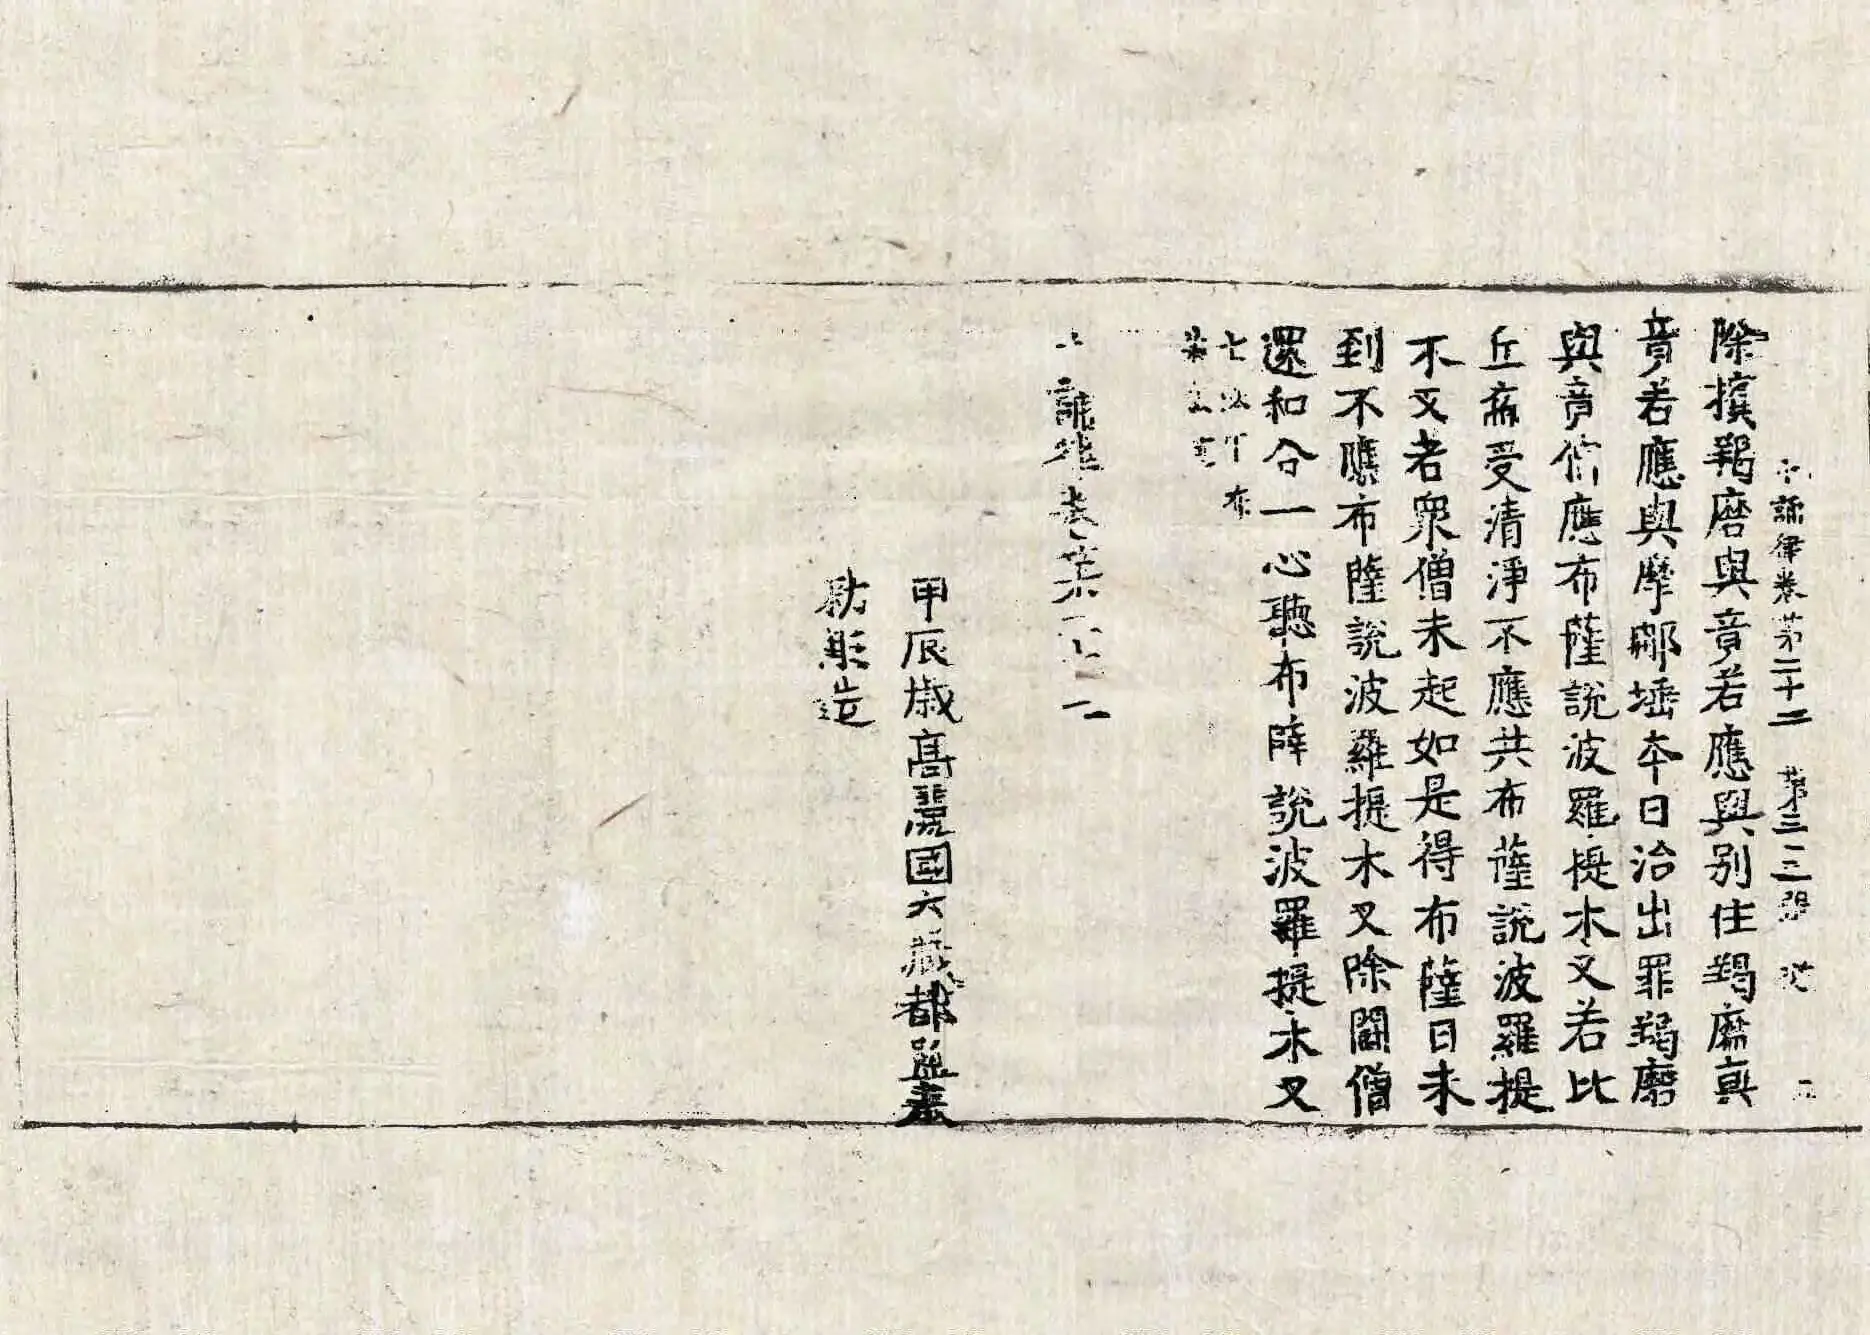 十誦律卷第二十二 第三三張
除擯羯磨與竟若應與別住羯磨與
竟若應與摩那埵本日治出罪羯磨
與竟介應布薩說波羅提木叉若比
丘病受清淨不應共布薩說波羅提
不叉者衆僧未起如是得布薩日未
到不應布薩說波羅提木叉除鬪僧
還和合一心聽布薩說波羅提木叉
七法 布
誦律卷第二
甲辰歲高麗國大藏都監奉
勅彫造